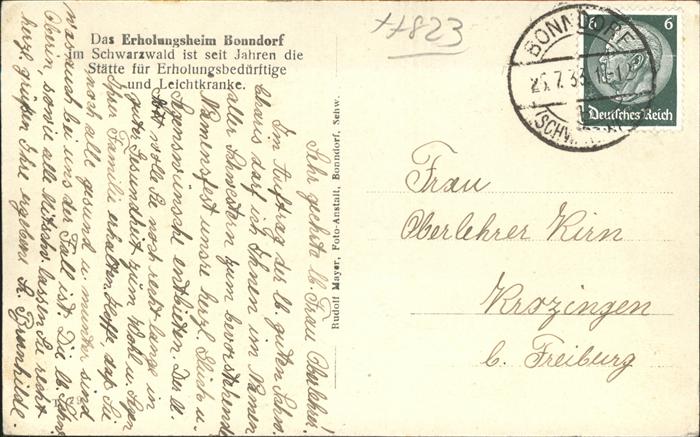 Das Erholungsheim Bonndorf
im Schwarzwald ist seit Jahren die
Stätte für Erholungsbedürftige
und Leichtkranke.
++823
BONNDORF
25.7.33
(SCHW
6 6
Deutsches Reich
Sehr geehrte lb. Frau Oberlehrer!
Im Auftrag der lb. guten Schw.
darf ich Ihnen im Namen
aller Schwestern zum bevorstehenden
Namensfest unsre herzl. Glück u.
Segenswünsche entbieten. Der lb.
Gott wolle Sie noch recht lange in
guter Gesundheit zum Wohl u. Segen
Ihrer Familie erhalten. Hoffe, daß Sie
noch alle gesund u. munter sind
was auch bei uns der Fall ist. Die lb. Schw.
Oberin, sowie alle Mitschw. lassen Sie recht
herzl. grüßen Ihre ergebene Sr. Brunhilde.
Rudolf Mayer, Foto-Anstalt, Bonndorf, Schw.
Frau
Oberlehrer Kirn
Krozingen
b. Freiburg